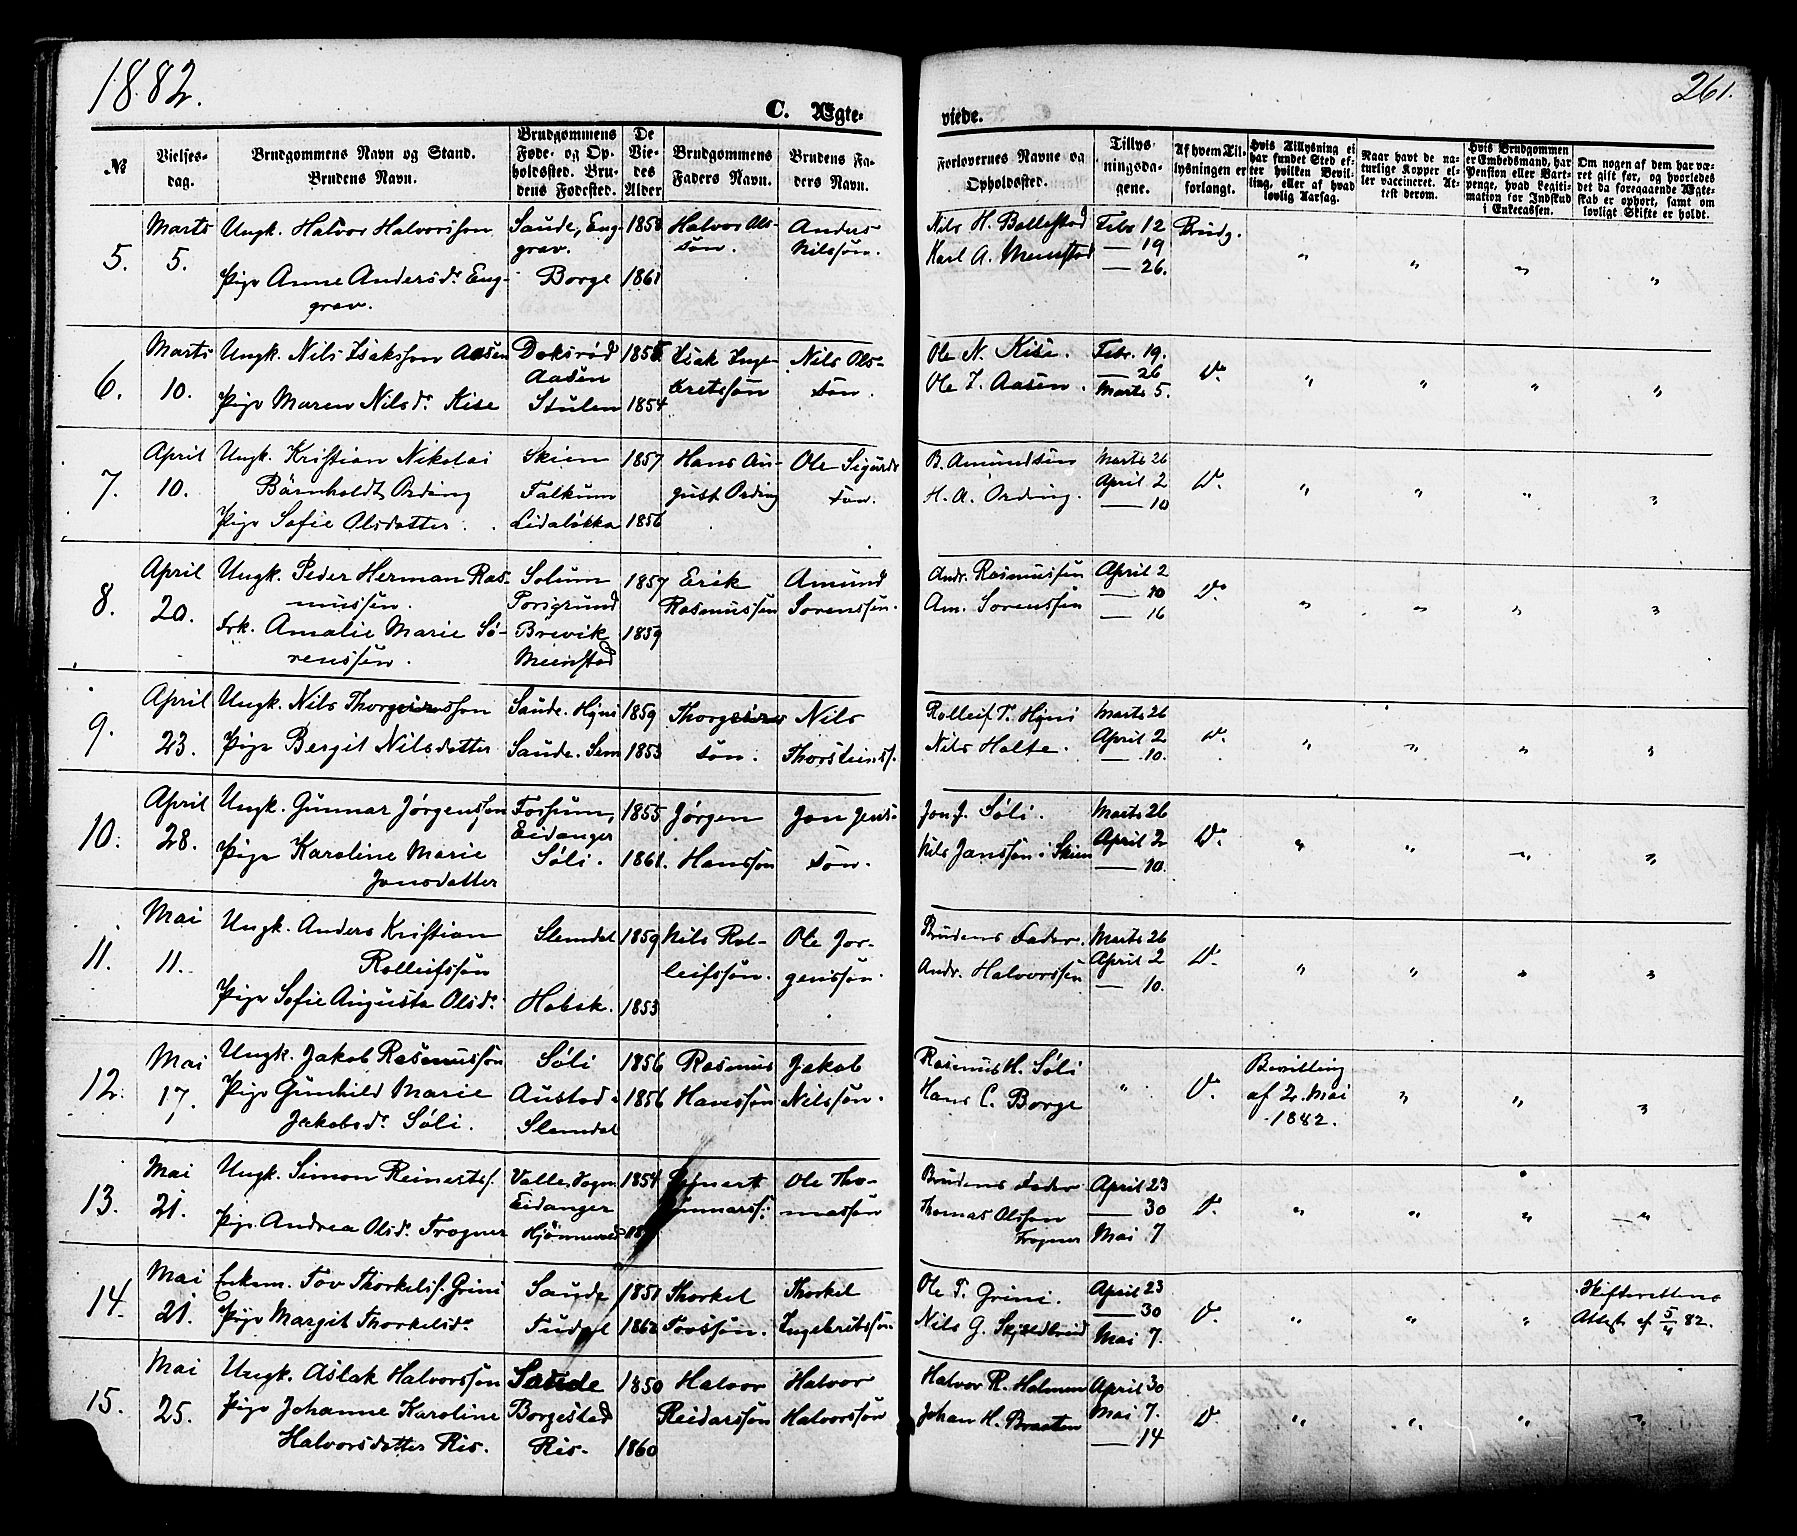 1882.
261.
C. Ægte-
viede.
№
Vielses-
dag.
Brudgommens Navn og Stand.
Brudens Navn.
Brudgommens
Føde- og Op-
holdssted. Bru-
dens Fødested.
De
Vie-
des
Alder
Brudgommens
Faders Navn.
Brudens Fa-
ders Navn.
Forlovernes Navne og
Opholdssted.
Tillys-
ningsda-
gene.
Af hvem Til-
lysningen er
forlangt.
Hvis Tillysning ei
har fundet Sted ef-
ter hvilken Bevil-
ling, eller af hvad
lovlig Aarsag.
Naar havt de na-
turlige Kopper el-
ler vaccineret. At-
test derom.
Hvis Brudgommen
er Embedsmand, har
Pension eller Vart-
penge, hvad Legiti-
mation for Indskud
i Enkecassen.
Om nogen af dem har væ-
ret gift før, og hvorledes
det da foregaaende Ægte-
skab er ophørt, samt om
lovligt Skifte er holdt.
5.
Marts
5.
Ungk. Halvor Halvorssøn
Pige Anne Andersdr Eng-
grav.
Saude, Eng-
grav.
Borge
1858
1861
Halvor Ols-
søn.
Anders
Nilssøn.
Nils H. Bollestad
Karl A. Menstad
Febr 12
— 19
— 26.
Brudg.
" " " "
6.
Marts
10.
Ungk. Nils Isakssøn Aasen
Pige Maren Nilsdr Kise
Doksrød
Aasen
Stulen
1854
Isak Inge-
bretssøn
Nils Ols-
søn.
Ole N. Kise.
Ole I. Aasen.
Febr. 19.
— 26
Marts 5.
Do
" " " "
7.
April
10.
Ungk. Kristian Nikolai
Bårnholdt Ording
Pige Sofie Olsdatter.
Skien
Falkum
Lidaløkka
1857
1856
Hans Au-
gust Ording
Ole Sigurds-
søn.
B. Amundsen
H. A. Ording.
Marts 26
April 2
— 10
Do
" " " "
8.
April
20.
Ungk. Peder Herman Ras-
mussen.
Frk. Amalie Marie Sø-
renssen.
Solum
Porsgrund
Brevik
Menstad
1857
1859
Erik
Rasmussen
Amund
Sorenssen.
Andr. Rasmussen
Am. Sorenssen
April 2
— 10
— 16
Do
" " " "
9.
April
23.
Ungk. Nils Thorgrimssøn
Pige Bergit Nilsdatter
Saude. Hjni
Saude. Sem
1859
1853
Thorgrims-
søn.
Nils
Thorsteinsf.
Rolleif T. Hjni
Nils Holte.
Marts 26
April 2
— 10.
Do
" " " "
10.
April
28.
Ungk. Gunnar Jørgenssøn
Pige Karoline Marie
Jonsdatter
Fossum,
Eidanger
Søli.
1855
1861.
Jørgen
Hanssøn
Jon Jens-
søn.
Jon J. Søli.
Nils Janssøn i Skien
Marts 26
April 2
— 10.
Do
" " " "
11.
Mai
11.
Ungk. Anders Kristian
Rolleifssøn
Pige Sofie Augusta Olsdr
Slemdal
Hobæk.
1859
1853
Nils Rol-
leifssøn.
Ole Jør-
genssøn.
Brudens Fader.
Andr. Halvorssen
Marts 26
April 2
— 10.
Do
" " " "
12.
Mai
17.
Ungk. Jakob Rasmussøn
Pige Gunhild Marie
Jakobsdr Søli.
Søli
Austad i
Slemdal
1856
1856
Rasmus
Hanssøn
Jakob
Nilssøn.
Rasmus H. Søli
Hans C. Borge
"
Do
Bevilling
af 2. Mai
1882.
" " "
13.
Mai
21.
Ungk. Simon Reinertsf.
Pige Andrea Olsdr Frogner
Valle, Vogn
Eidanger
1854
Reinert
Gunnarsf.
Ole Tho-
massøn
Brudens Fader
Thomas Olssøn
Frogner
April 23
— 30
Mai 7
Do
" " " "
14.
Mai
21.
Enkem. Tov Thorkelsf. Grini
Pige Margit Thorkelsdr
Saude
Tudal
1851
1862
Thorkel
Tovssøn.
Thorkel
Ingebritssøn.
Ole T. Grini.
Nils G. Skjeldbreid
April 23
— 30
Mai 7.
Do
" " "
Skifterettens
Attest af 5/4 82.
15.
Mai
25.
Ungk. Aslak Halvorssøn
Pige Johanne Karoline
Halvorsdatter Ris.
Saude
Borgestad
Ris.
1850
1860
Halvor
Reidarssøn
Halvor
Halvorssøn
Halvor R. Holmen
Johan H. Braaten
April 30
Mai 7.
— 14
Do
" " " "